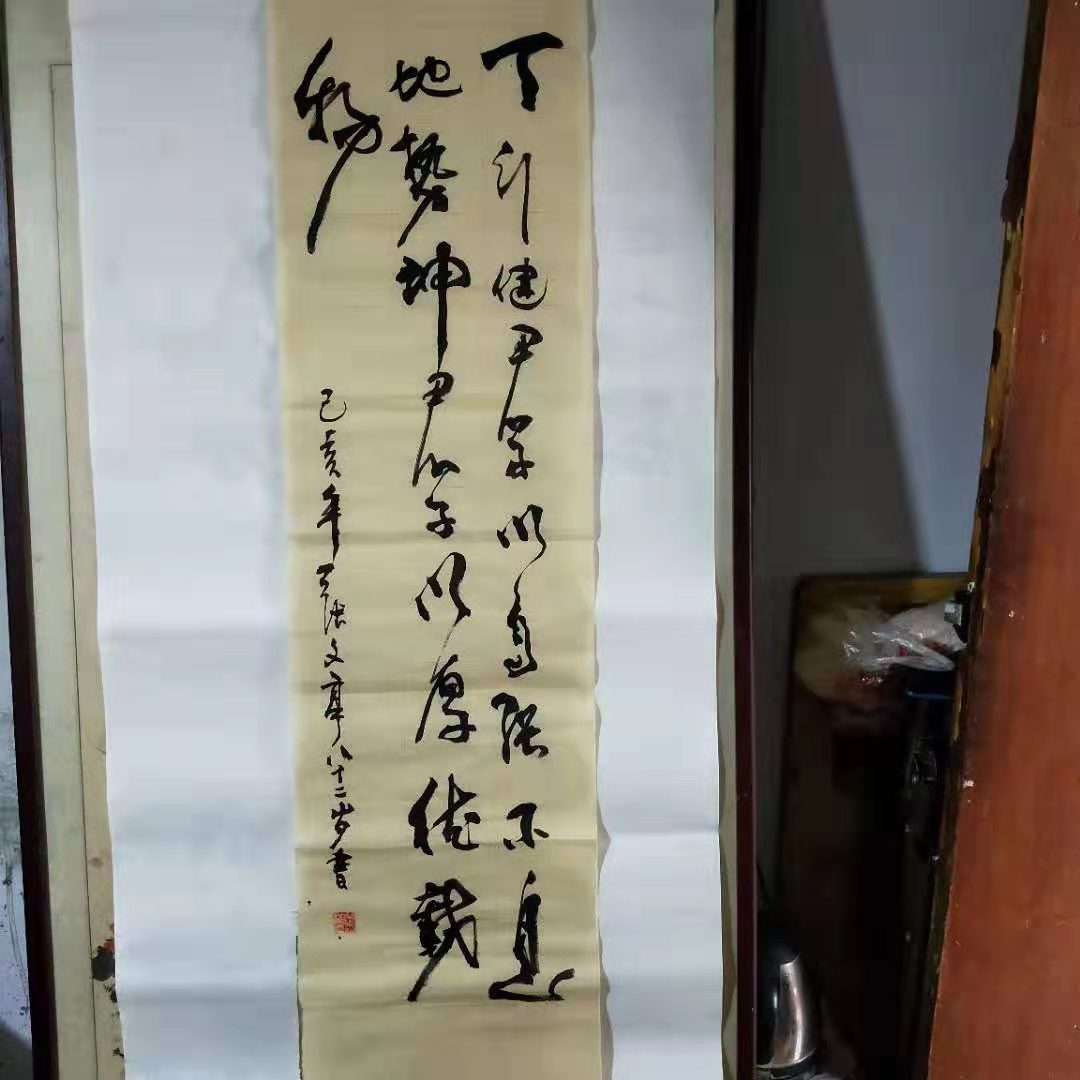 天行健君子以自强不息
地势坤君子以厚德载
物
己亥年 张文亭八十二岁书